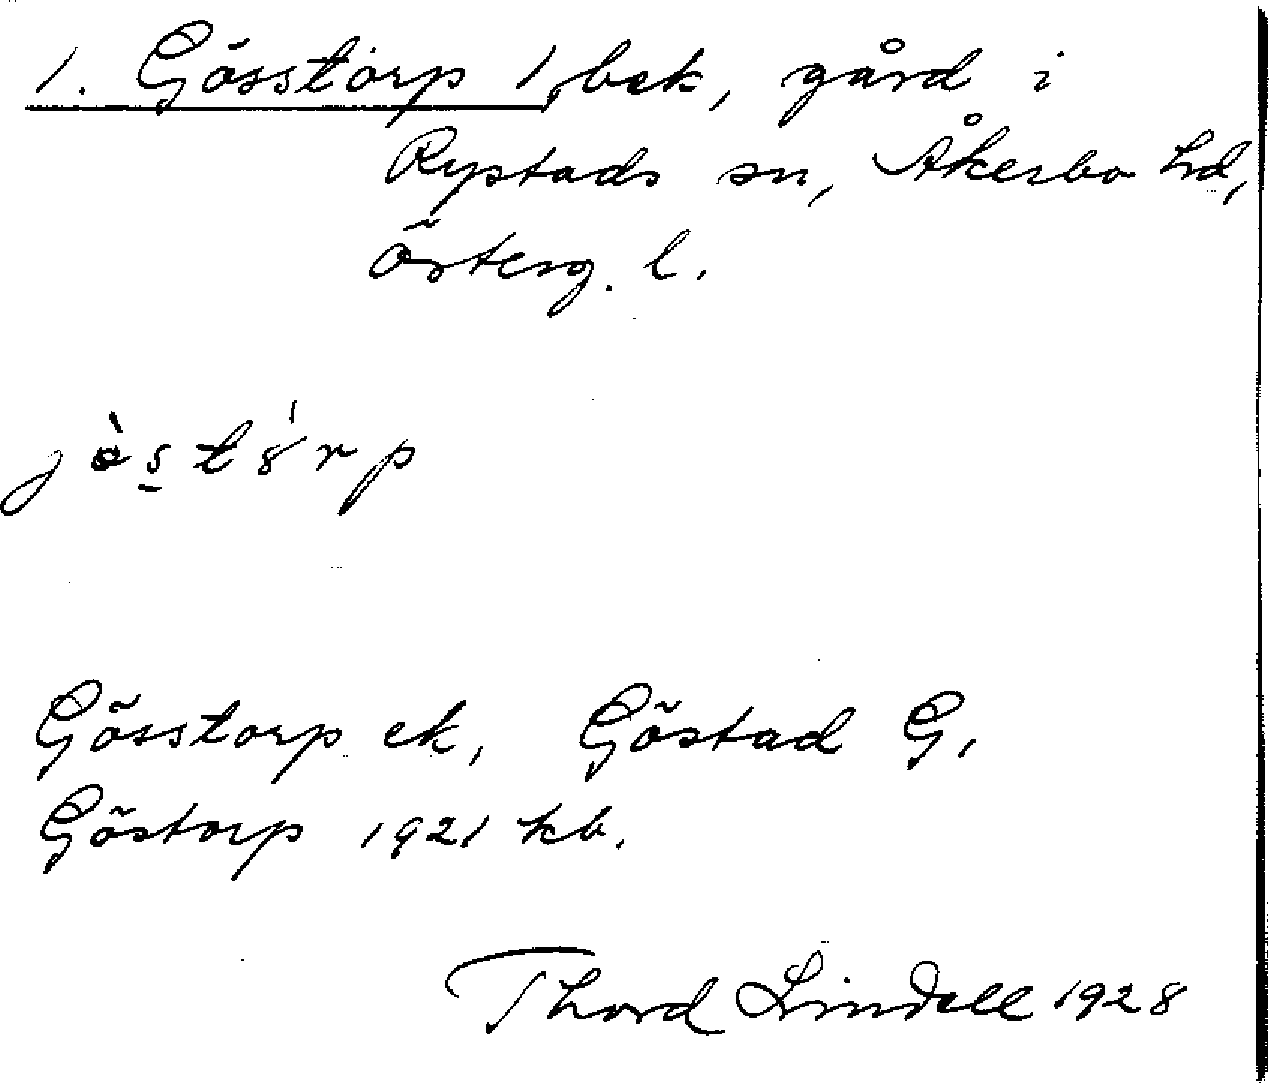 1. Gösstorp 1, bek, gård i
Rystads sn, Åkerbo hd,
Österg. l.
Gösstorp ek, Göstad G,
Göstorp 1921 kb.
Thord Lindell 1928